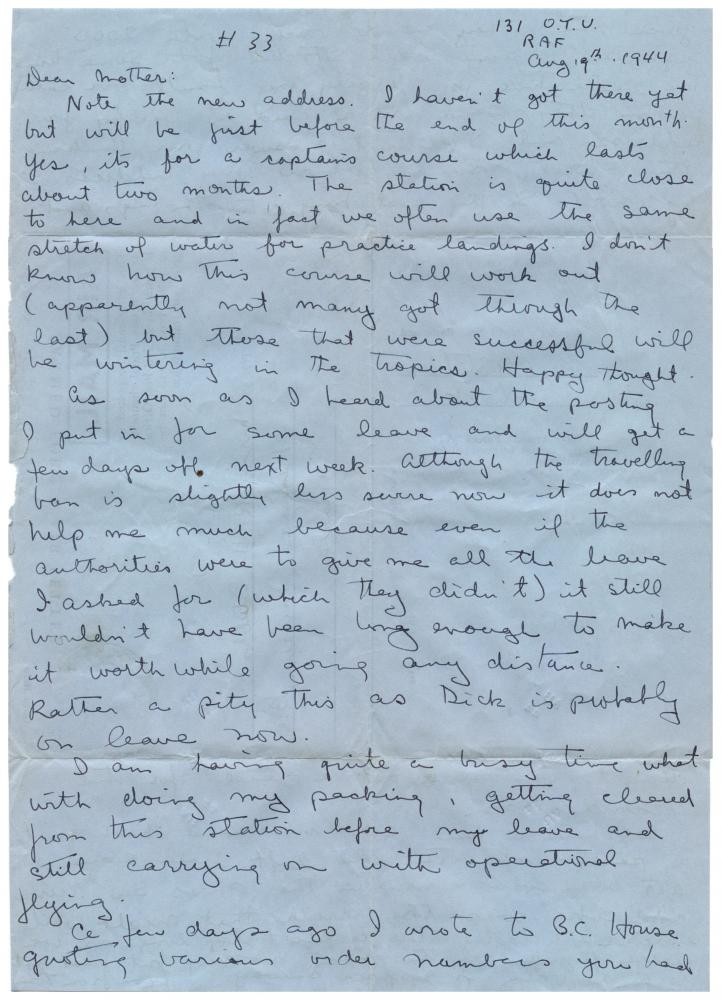 # 33
131 O.T.U.
RAF
Aug 19th. 1944
Dear Mother:
Note the new address. I haven't got there yet
but will be just before the end of this month.
Yes, its for a captains course which lasts
about two months. The station is quite close
to here and in fact we often use the same
stretch of water for practice landings. I don't
know how this course will work out
(apparently not many got through the
last) but those that were successful will
be wintering in the tropics. Happy thought.
As soon as I heard about the posting
I put in for some leave and will get a
few days off next week. Although the travelling
ban is slightly less severe now it does not
help me much because even if the
authorities were to give me all the leave
I asked for (which they didn't) it still
wouldn't have been long enough to make
it worth while going any distance.
Rather a pity this as Dick is probably
on leave now.
I am having quite a busy time what
with doing my packing, getting cleared
from this station before my leave and
still carrying on with operational
flying.
A few days ago I wrote to B.C. House
quoting various order numbers you had